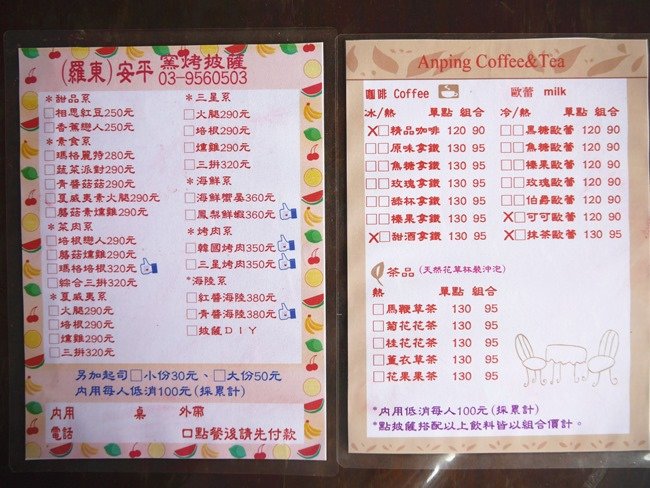 (羅東)安平 窯烤披薩
03-9560503
*甜品系
□相思紅豆250元
□香蕉戀人250元
*素食系
□瑪格麗特280元
□蔬菜派對290元
□青醬菇菇290元
□夏威夷素火腿290元
□蘑菇素燻雞290元
*菜肉系
□培根戀人290元
□蘑菇燻雞290元
□瑪格培根320元
□綜合三拼320元
*夏威夷系
□火腿290元
□培根290元
□燻雞290元
□三拼320元
*三星系
□火腿290元
□培根290元
□燻雞290元
□三拼320元
*海鮮系
□海鮮饗宴360元
□鳳梨鮮蝦360元
*烤肉系
□韓國烤肉350元
□三星烤肉350元
*海陸系
□紅醬海陸380元
□青醬海陸380元
□披薩DIY
另加起司□小份30元、□大份50元
內用每人低消100元(採累計)
內用 桌 外帶
電話 口點餐後請先付款
Anping Coffee&Tea
咖啡 Coffee
冰/熱 單點 組合
□□精品咖啡 120 90
□□原味拿鐵 130 95
□□焦糖拿鐵 130 95
□□玫瑰拿鐵 130 95
□□綠杯拿鐵 130 95
□□榛果拿鐵 130 95
□□甜酒拿鐵 130 95
歐蕾 milk
冷/熱 單點 組合
□□黑糖歐蕾 120 90
□□焦糖歐蕾 120 90
□□榛果歐蕾 120 90
□□玫瑰歐蕾 120 90
□□伯爵歐蕾 120 90
□□可可歐蕾 120 90
□□抹茶歐蕾 120 90
茶品(天然花草杯裝沖泡)
熱 單點 組合
□馬鞭草茶 130 95
□菊花花茶 130 95
□桂花花茶 130 95
□薰衣草茶 130 95
□花果果茶 130 95
*內用低消每人100元(採累計)
*點披薩搭配以上飲料皆以組合價計。